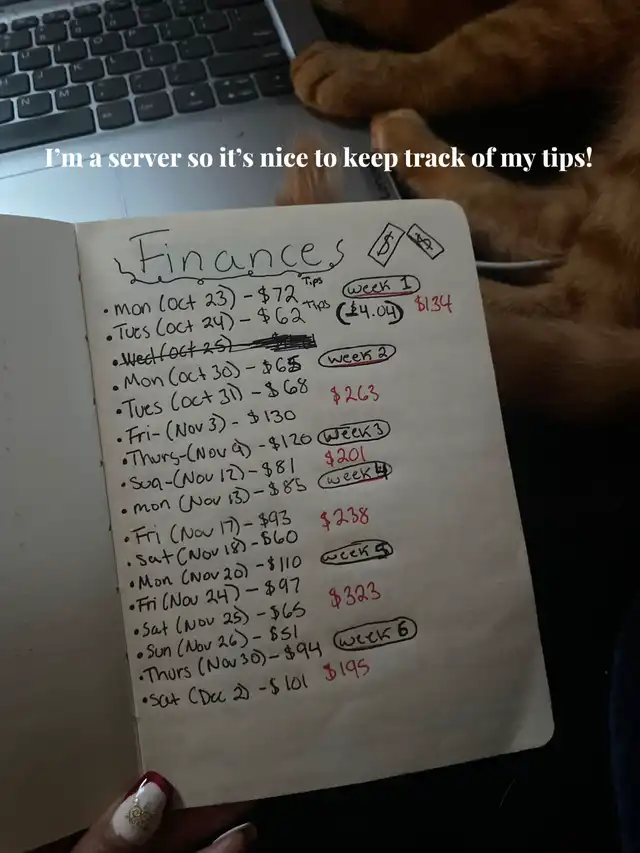 I'm a server so it's nice to keep track of my tips!
Finances $ $
• Mon (Oct 23) - $72 Tips week 1
• Tues (Oct 24) - $62 Tips ($4.04) $134
• Wed (Oct 25) -
• Mon (Oct 30) - $65 week 2
• Tues (Oct 31) - $68 $263
• Fri- (Nov 3) - $130
• Thurs-(Nov 9) - $120 week 3
• Sun-(Nov 12) - $81 $201
• mon (Nov 13) - $85 week 4
• Fri (Nov 17) - $93 $238
• Sat (Nov 18) - $60
• Mon (Nov 20) - $110 week 5
• Fri (Nov 24) - $97 $323
• Sat (Nov 25) - $65
• Sun (Nov 26) - $51
• Thurs (Nov 30) - $94 week 6
• Sat (Dec 2) - $101 $195